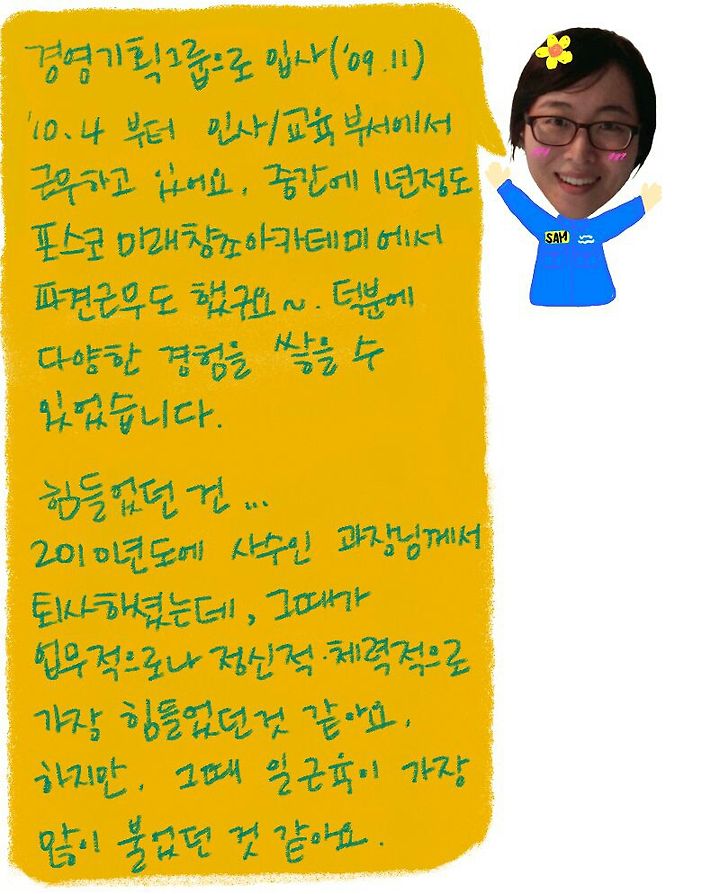 경영기획그룹으로 입사('09.11)
'10.4 부터 인사/교육부서에서
근무하고 있어요. 중간에 1년정도
포스코 미래창조아카데미에서
파견근무도 했구요~. 덕분에
다양한 경험을 쌓을 수
있었습니다.
힘들었던 건...
2010년도에 사수인 과장님께서
퇴사하셨는데, 그때가
업무적으로나 정신적·체력적으로
가장 힘들었던것 같아요.
하지만, 그때 일근육이 가장
많이 붙었던 것 같아요.
SAM